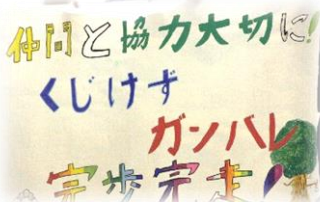 仲間と協力大切に!
くじけず
ガンバレ
完歩完走!